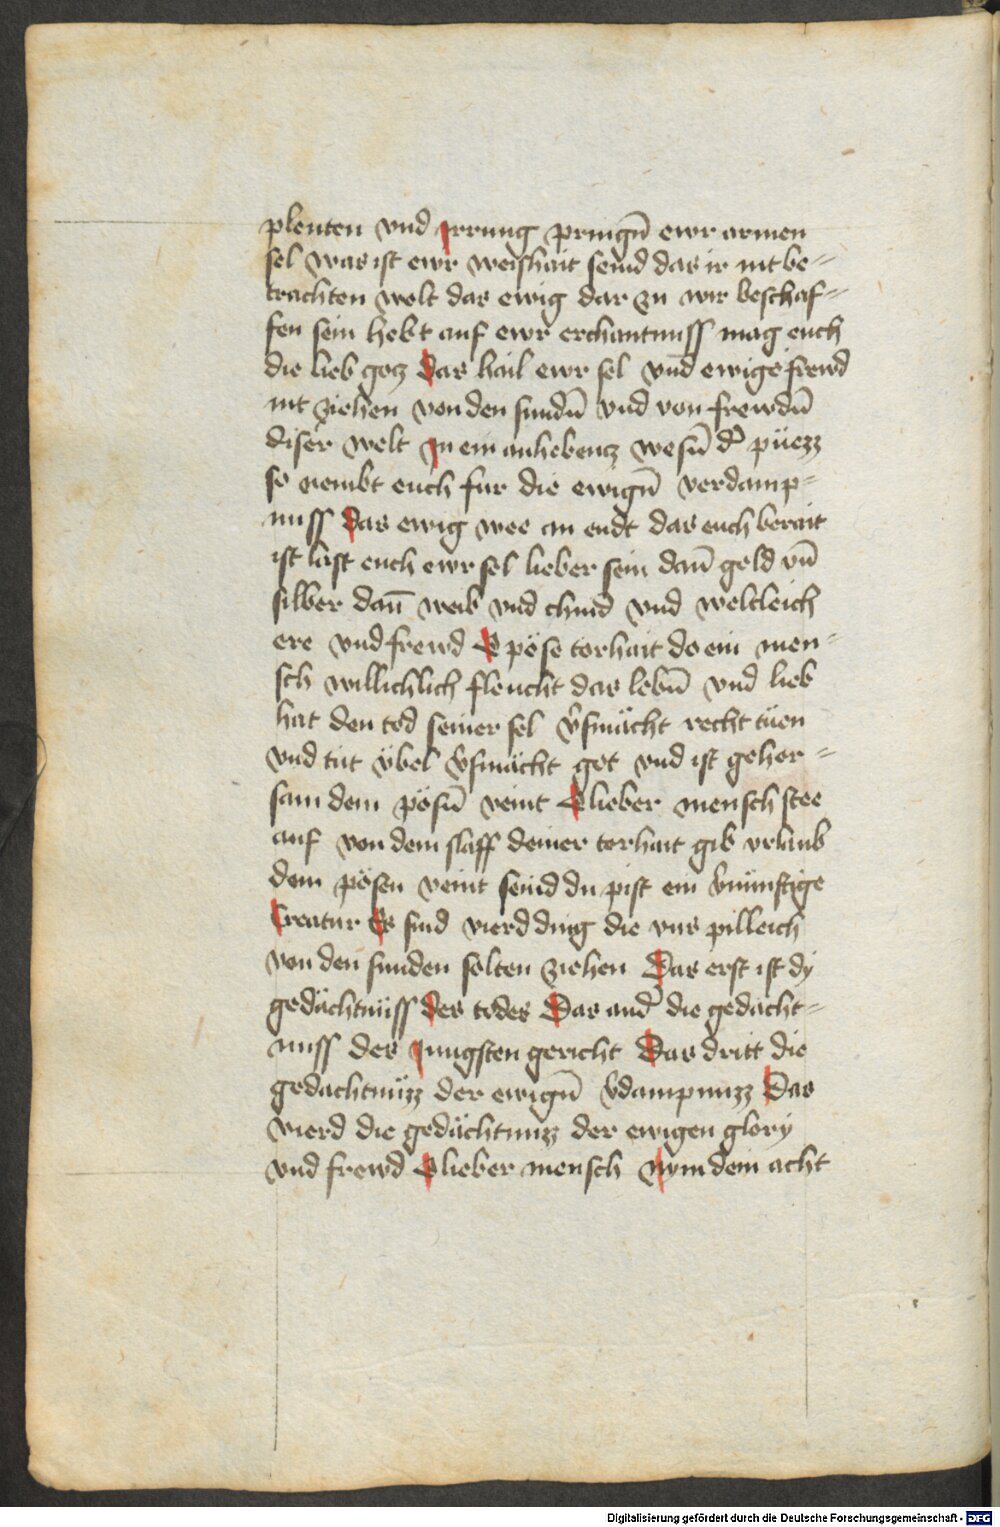 plenten vnd Irrung pringn̄ ewr armen
sel was ist ewr weishait seind das ir nit be=
trachten welt das ewig dar zu wir beschaf=
fen sein hebt auf ewr erchantnuss mag euch
die lieb gotz Das hail ewr sel vnd ewige frewd
nit ziehen von den sundn̄ vnd von frewdn̄
diser welt In ein anhebentz wesn̄ d͛ püezz
so nembt euch fur die ewign̄ verdamp=
nuss Das ewig wee an endt das euch berait
ist last euch ewr sel lieber sein dan̄ geld vn̄
silber dan̄ weib vnd chind vnd weltleich
ere vnd frewd O pöse torhait do ein men=
sch willichlich fleucht das lebn̄ vnd lieb
hat den tod seiner sel v͛smächt recht tüen
vnd tüt übel v͛smächt got vnd ist gehor=
sam dem pösn̄ veint O lieber mensch stee
auf von dem slaff deiner torhait gib vrlaub
dem pösen veint seind du pist ein v͛nünftige
Creatur Es sind vierd ding die vns pilleich
von den sunden solten ziehen Das erst ist dÿ
gedächtnüss des todes Das and͛ die gedächt=
nuss des Jungsten gericht Das dritt die
gedachtnüzz der ewign̄ v͛dampnuzz Das
vierd die gedächtnuzz der ewigen glory
vnd frewd O lieber mensch Nym dein acht
Digitalisierung gefördert durch die Deutsche Forschungsgemeinschaft - DFG